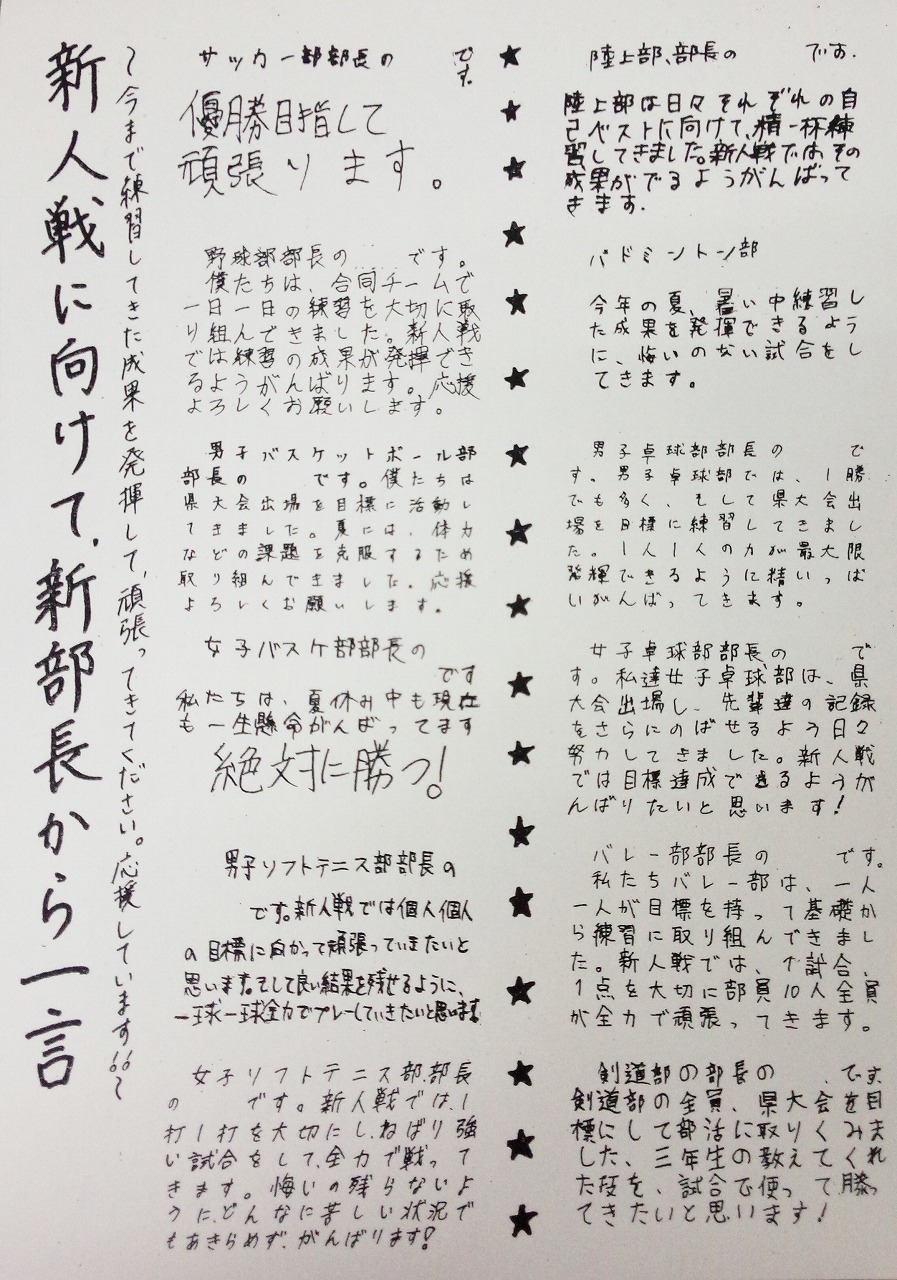 新人戦に向けて、新部長から一言
〜今まで練習してきた成果を発揮して、頑張ってきてください。応援しています！！〜
サッカー部部長の　　です。
優勝目指して
頑張ります。
野球部部長の　　です。
僕たちは、合同チームで
一日一日の練習を大切に取
り組んできました。新人戦
では練習の成果が発揮でき
るようがんばります。応援
よろしくお願いします。
男子バスケットボール部
部長の　　です。僕たちは
県大会出場を目標に活動し
てきました。夏には、体力
などの課題を克服するため
取り組んできました。応援
よろしくお願いします。
女子バスケ部部長の
です
私たちは、夏休み中も現在
も一生懸命がんばってます
絶対に勝つ！
男子ソフトテニス部部長の
です。新人戦では個人個人
の目標に向かって頑張っていきたいと
思います。そして良い結果を残せるように、
一球一球全力でプレーしていきたいと思います。
女子ソフトテニス部、部長
の　　です。新人戦では、1
打1打を大切にし、ねばり強
い試合をして、全力で戦って
きます。悔いの残らないよ
うに、どんなに苦しい状況で
もあきらめず、がんばります！
陸上部、部長の　　です。
陸上部は日々それぞれの自
己ベストに向けて、精一杯練
習してきました。新人戦ではその
成果がでるようがんばって
きます。
バドミントン部
今年の夏、暑い中練習し
た成果を発揮できるよう
に、悔いのない試合をし
てきます。
男子卓球部部長の　　で
す。男子卓球部では、1勝
でも多く、そして県大会出
場を目標に練習してきまし
た。1人1人の力が最大限
発揮できるように精いっぱ
いがんばってきます。
女子卓球部部長の　　で
す。私達女子卓球部は、県
大会出場し、先輩達の記録
をさらにのばせるよう日々
努力してきました。新人戦
では目標達成できるようが
んばりたいと思います！
バレー部部長の　　です。
私たちバレー部は、一人
一人が目標を持って基礎か
ら練習に取り組んできまし
た。新人戦では、1試合、
1点を大切に部員10人全員
が全力で頑張ってきます。
剣道部の部長の　　です。
剣道部の全員、県大会を目
標にして部活に取りくみま
した、三年生の教えてくれ
た技を、試合で使って勝っ
てきたいと思います！